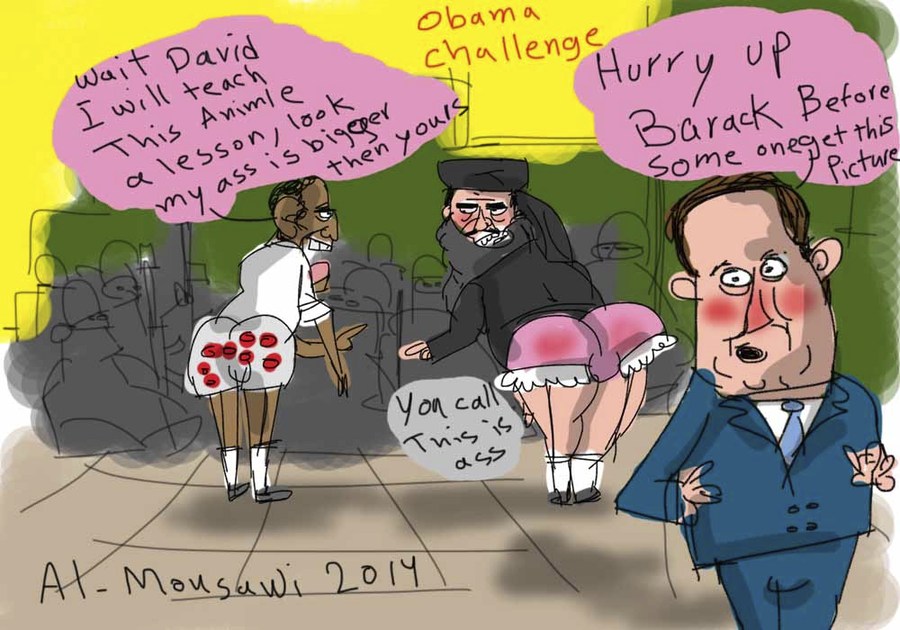 Obama
challenge
Wait David
I will teach
This Animle
a lesson, look
my ass is bigger
then yours
Hurry up
Barack Before
some one get this
Picture
You call
This is
ass
Al-Mousawi 2014